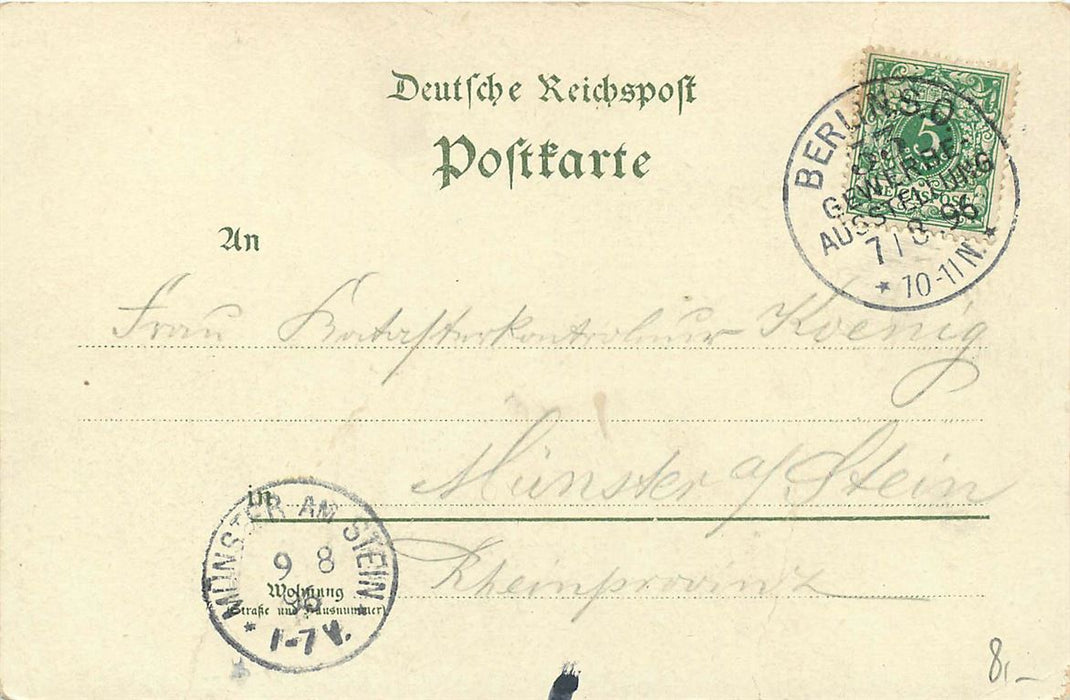 Deutsche Reichspost
Postkarte
An
BERLIN S.O.
GEWERBE
AUSSTELLUNG
7/8 96
* 10-11 N. *
5
REICHSPOST
Frau Katasterkontroleur Koenig
in Münster a/Stein
Rheinprovinz
MÜNSTER AM STEIN
9 8
96
* 1-7 V. *
Wohnung
(Straße und Hausnummer)
8,-